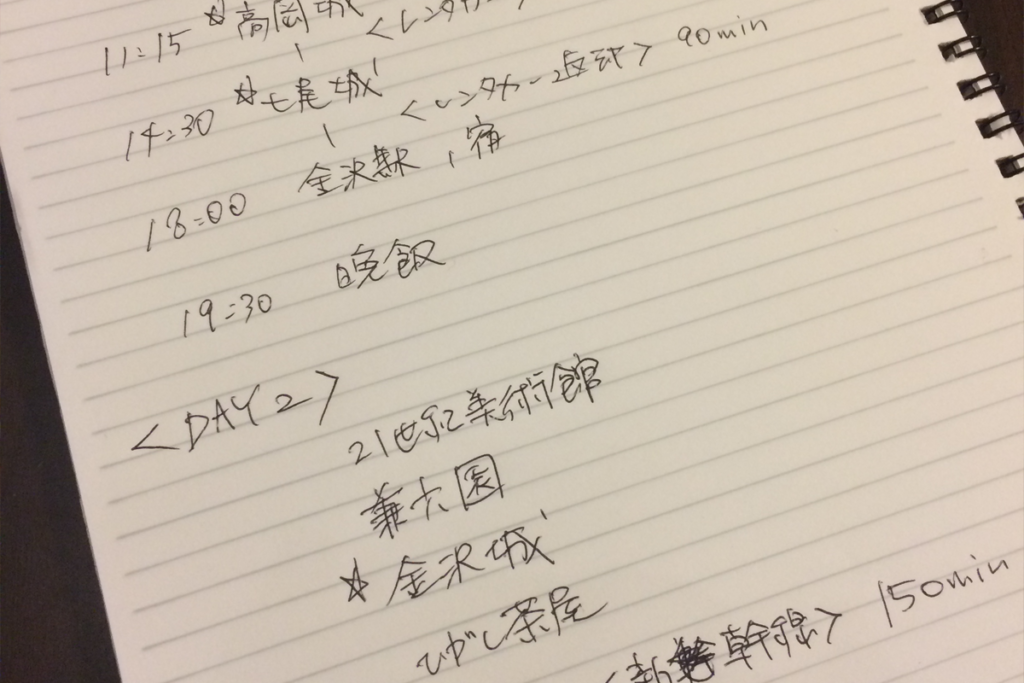 11:15 ☆高岡城 <レンタカー
14:30 ☆七尾城 <レンタカー返却> 90min
18:00 金沢駅、宿
19:30 晩飯
<DAY 2>
21世紀美術館
兼六園
☆金沢城
ひがし茶屋
<新幹線> 150min